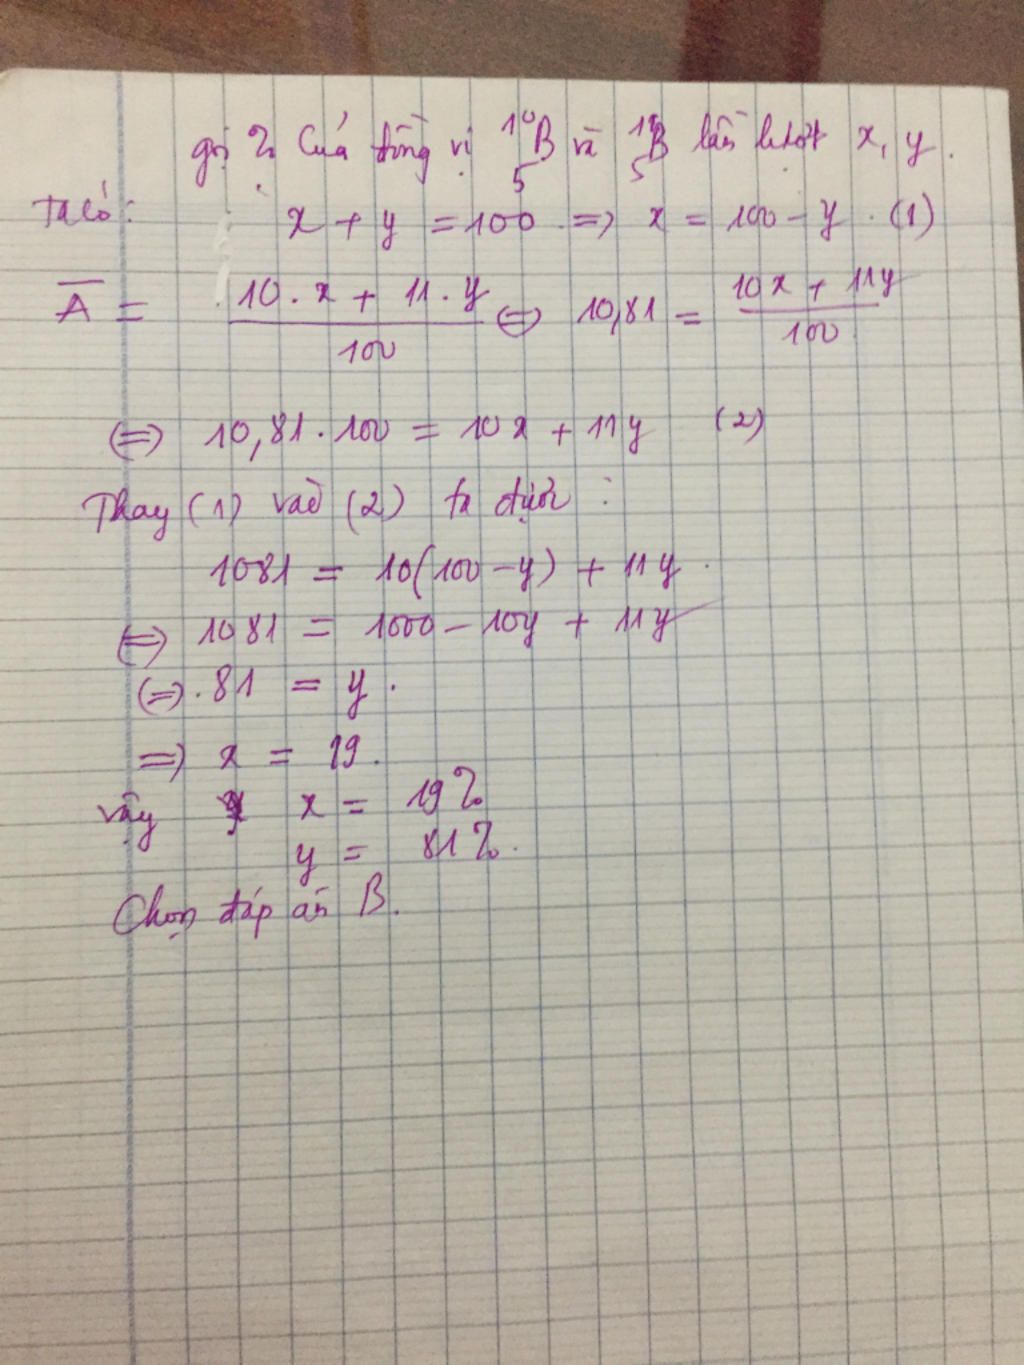 gọi % của đồng vị ¹⁰₅B và ¹¹₅B lần lượt x, y.
Ta có: x + y = 100 => x = 100 - y . (1)
A̅ = (10.x + 11.y)/100 <=> 10,81 = (10x + 11y)/100
<=> 10,81.100 = 10x + 11y (2)
Thay (1) vào (2) ta được :
1081 = 10(100 - y) + 11y .
<=> 1081 = 1000 - 10y + 11y
<=> . 81 = y .
=> x = 19 .
vậy x = 19%
y = 81% .
Chọn đáp án B.